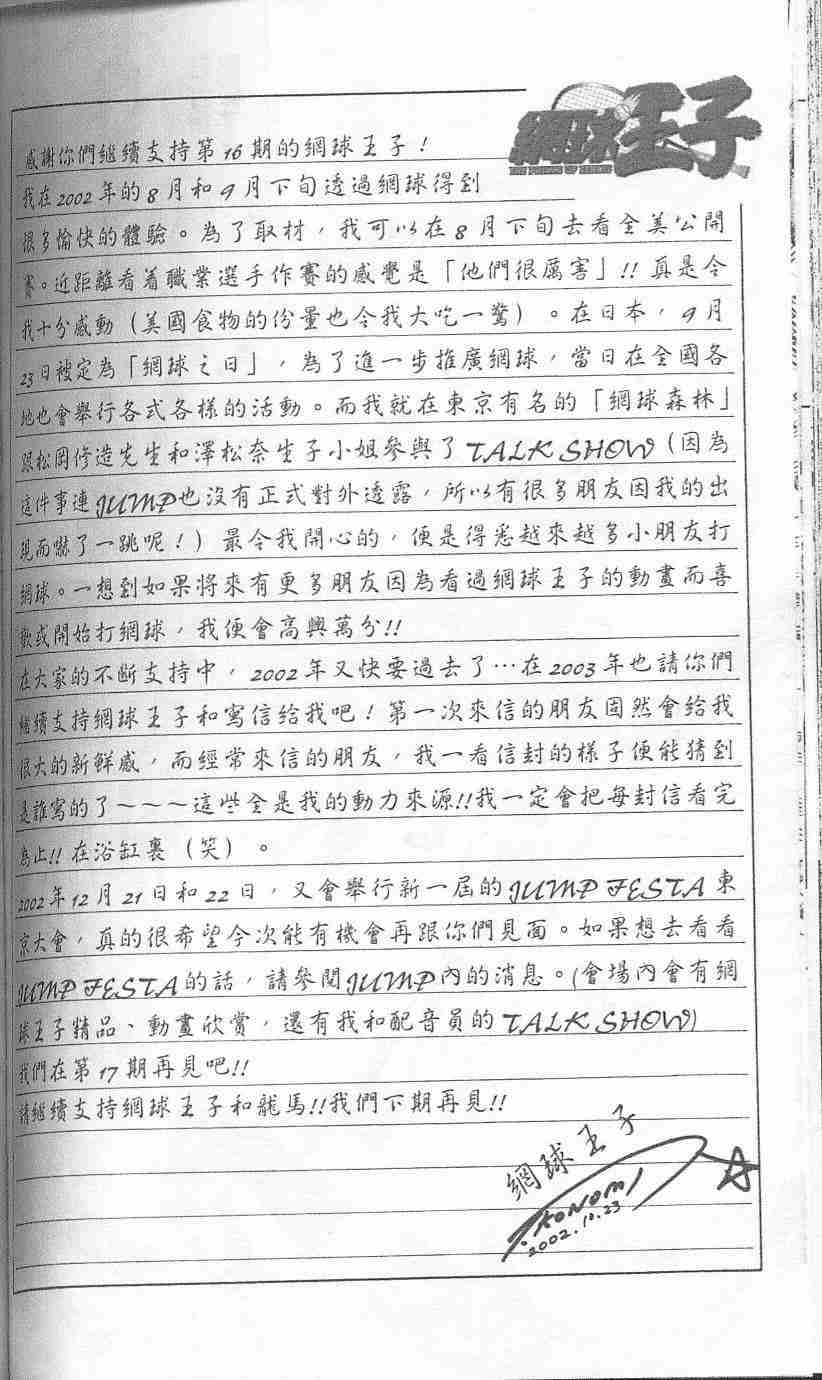 網球王子
感謝你們繼續支持第16期的網球王子！
我在2002年的8月和9月下旬透過網球得到
很多愉快的體驗。為了取材，我可以在8月下旬去看全美公開
賽。近距離看着職業選手作賽的感覺是「他們很厲害」!!真是令
我十分感動（美國食物的份量也令我大吃一驚）。在日本，9月
23日被定為「網球之日」，為了進一步推廣網球，當日在全國各
地也會舉行各式各樣的活動。而我就在東京有名的「網球森林」
跟松岡修造先生和澤松奈生子小姐參與了TALK SHOW（因為
這件事連JUMP也沒有正式對外透露，所以有很多朋友因我的出
現而嚇了一跳呢！）最令我開心的，便是得悉越來越多小朋友打
網球。一想到如果將來有更多朋友因為看過網球王子的動畫而喜
歡或開始打網球，我便會高興萬分!!
在大家的不斷支持中，2002年又快要過去了…在2003年也請你們
繼續支持網球王子和寫信給我吧！第一次來信的朋友固然會給我
很大的新鮮感，而經常來信的朋友，我一看信封的樣子便能猜到
是誰寫的了～～～這些全是我的動力來源!!我一定會把每封信看完
為止!!在浴缸裏（笑）。
2002年12月21日和22日，又會舉行新一屆的JUMP FESTA東
京大會，真的很希望今次能有機會再跟你們見面。如果想去看看
JUMP FESTA的話，請參閱JUMP內的消息。(會場內會有網
球王子精品、動畫欣賞，還有我和配音員的TALK SHOW)
我們在第17期再見吧!!
請繼續支持網球王子和龍馬!!我們下期再見!!
網球王子
KONOMI
2002.10.23